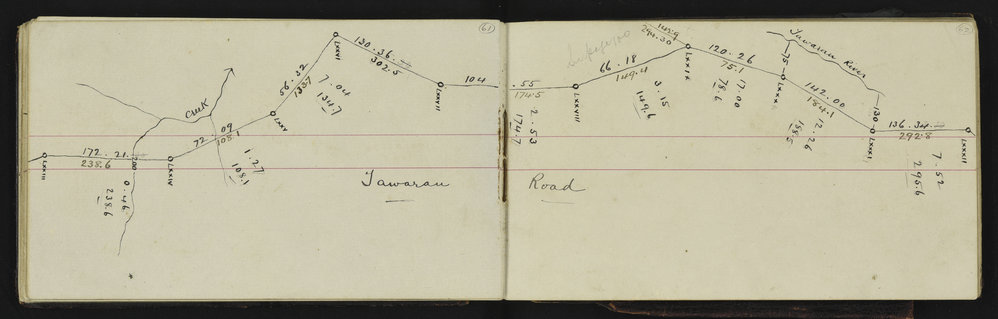 61
LXXIII
172 . 21
238.6
200
0.46
238.6
Creek
LXXIV
72 . 09
108.1
1.27
108.1
LXXV
56 . 32
133.7
7.04
134.7
LXXVI
130 . 36
302.5
LXXVII
104
Tawaran
62
. 55
174.5
2.53
174.7
LXXVIII
66 . 18
149.4
3.15
149.6
294.30
LXXIX
120 . 26
75.1
17.00
78.6
Tawaran River
75
LXXX
142.00
184.1
12.26
188.5
130
LXXXI
136.34
292.8
7.52
295.6
LXXXII
Road